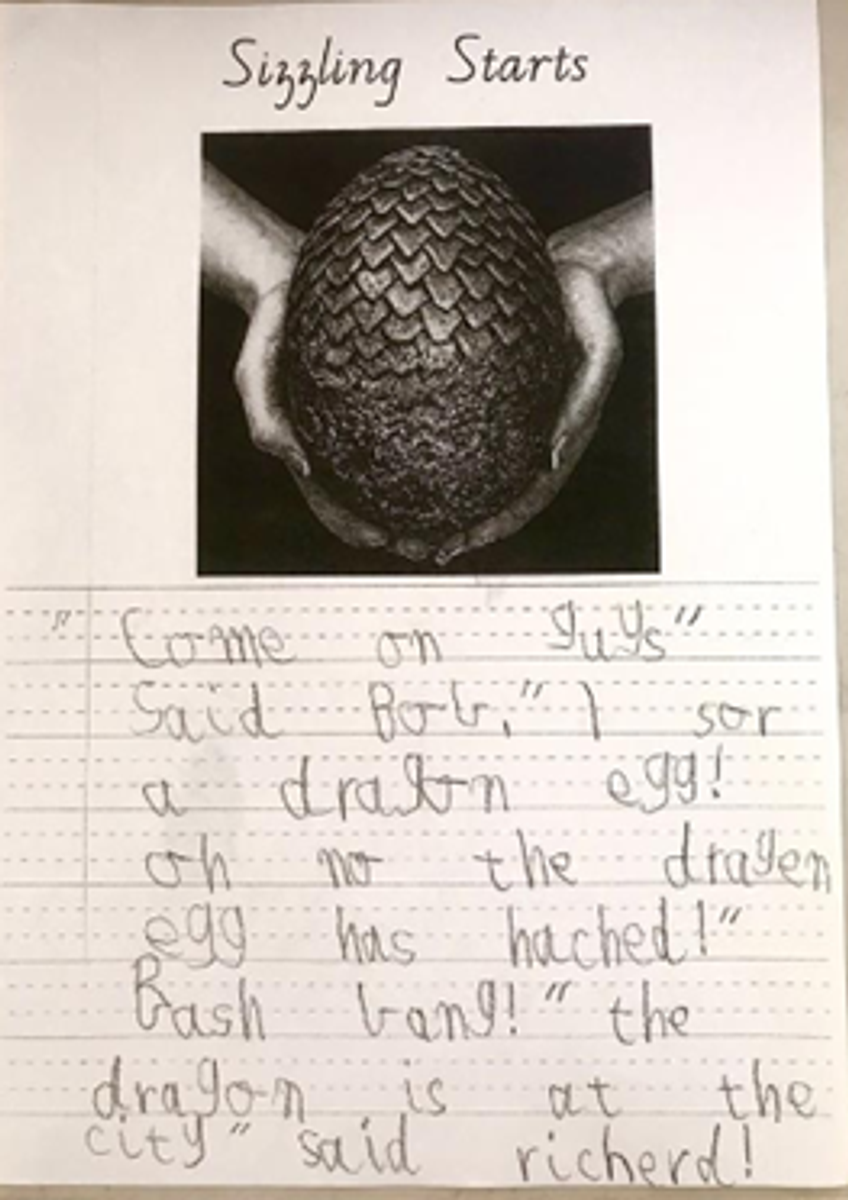 Sizzling Starts
" Come on guys"
Said Bob." I sor
a dragon egg!
oh no the dragen
egg has hached!"
Bash bang! " the
dragon is at the
city" said richerd!